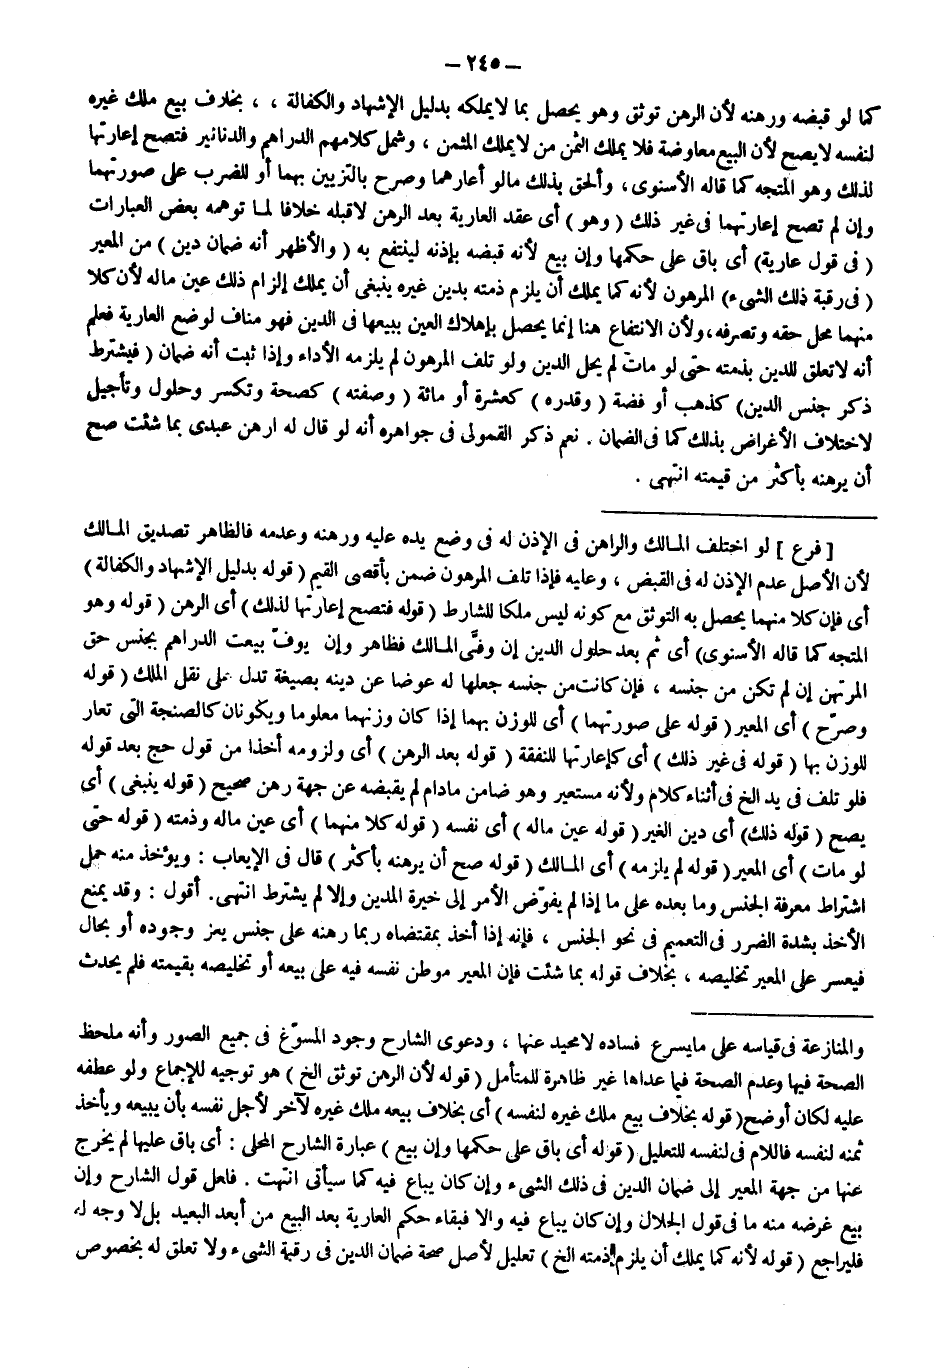 — ٢٤٥ —
كما لو قبضه ورهنه لأن الرهن توثق وهو يحصل بما لايملكه بدليل الإشهاد والكفالة ، ، بخلاف بيع ملك غيره
لنفسه لايصح لأن البيع معاوضة فلا يملك الثمن من لايملك المثمن ، وشمل كلامهم الدراهم والدنانير فتصح إعارتها
لذلك وهو المتجه كما قاله الأسنوى، وألحق بذلك مالو أعارهما وصرح بالتزيين بهما أو للضرب على صورتهما
وإن لم تصح إعارتهما فى غير ذلك ( وهو ) أى عقد العارية بعد الرهن لاقبله خلافا لما توهمه بعض العبارات
( فى قول عارية) أى باق على حكمها وإن بيع لأنه قبضه بإذنه لينتفع به ( والأظهر أنه ضمان دين ) من المعير
( فى رقبة ذلك الشىء) المرهون لأنه كما يملك أن يلزم ذمته بدين غيره ينبغى أن يملك إلزام ذلك عين ماله لأن كلا
منهما محل حقه وتصرفه،ولأن الانتفاع هنا إنما يحصل بإهلاك العين ببيعها فى الدين فهو مناف لوضع العارية فعلم
أنه لاتعلق للدين بذمته حتى لو مات لم يحل الدين ولو تلف المرهون لم يلزمه الأداء وإذا ثبت أنه ضمان ( فيشترط
ذكر جنس الدين) كذهب أو فضة ( وقدره ) كعشرة أو مائة ( وصفته ) كصحة وتكسر وحلول وتأجيل
لاختلاف الأغراض بذلك كما فى الضمان . نعم ذكر القمولى فى جواهره أنه لو قال له ارهن عبدى بما شئت صح
أن يرهنه بأكثر من قيمته انتهى .
[ فرع ] لو اختلف المالك والراهن فى الإذن له فى وضع يده عليه ورهنه وعدمه فالظاهر تصديق المالك
لأن الأصل عدم الإذن له فى القبض ، وعليه فإذا تلف المرهون ضمن بأقصى القيم ( قوله بدليل الإشهاد والكفالة )
أى فإن كلا منهما يحصل به التوثق مع كونه ليس ملكا للشارط ( قوله فتصح إعارتها لذلك ) أى الرهن ( قوله وهو
المتجه كما قاله الأسنوى) أى ثم بعد حلول الدين إن وفَّى المالك فظاهر وإن يوفّ بيعت الدراهم بجنس حق
المرتهن إن لم تكن من جنسه ، فإن كانت من جنسه جعلها له عوضا عن دينه بصيغة تدل على نقل الملك ( قوله
وصرّح ) أى المعير ( قوله على صورتهما ) أى للوزن بهما إذا كان وزنهما معلوما ويكونان كالصنجة التى تعار
للوزن بها ( قوله فى غير ذلك ) أى كإعارتها للنفقة ( قوله بعد الرهن ) أى ولزومه أخذا من قول حج بعد قوله
فلو تلف فى يد الخ فى أثناء كلام ولأنه مستعير وهو ضامن مادام لم يقبضه عن جهة رهن صحيح ( قوله ينبغى ) أى
يصح ( قوله ذلك) أى دين الغير ( قوله عين ماله ) أى نفسه ( قوله كلا منهما ) أى عين ماله وذمته ( قوله حتى
لو مات ) أى المعير ( قوله لم يلزمه ) أى المالك ( قوله صح أن يرهنه بأكثر ) قال فى الإيعاب : ويؤخذ منه حمل
اشتراط معرفة الجنس وما بعده على ما إذا لم يفوّض الأمر إلى خيرة المدين وإلا لم يشترط انتهى. أقول : وقد يمنع
الأخذ بشدة الضرر فى التعميم فى نحو الجنس ، فإنه إذا أخذ بمقتضاه ربما رهنه على جنس يعز وجوده أو بحال
فيعسر على المعير تخليصه ، بخلاف قوله بما شئت فإن المعير موطن نفسه فيه على بيعه أو تخليصه بقيمته فلم يحدث
والمنازعة فى قياسه على مايسرع فساده لامحيد عنها ، ودعوى الشارح وجود المسوّغ فى جميع الصور وأنه ملحظ
الصحة فيها وعدم الصحة فيما عداها غير ظاهرة للمتأمل ( قوله لأن الرهن توثق الخ ) هو توجيه للإجماع ولو عطفه
عليه لكان أوضح( قوله بخلاف بيع ملك غيره لنفسه ) أى بخلاف بيعه ملك غيره لآخر لأجل نفسه بأن يبيعه ويأخذ
ثمنه لنفسه فاللام فى لنفسه للتعليل ( قوله أى باق على حكمها وإن بيع ) عبارة الشارح المحلى : أى باق عليها لم يخرج
عنها من جهة المعير إلى ضمان الدين فى ذلك الشىء وإن كان يباع فيه كما سيأتى انتهت . فلعل قول الشارح وإن
بيع غرضه منه ما فى قول الجلال وإن كان يباع فيه والا فبقاء حكم العارية بعد البيع من أبعد البعيد بل لا وجه له
فليراجع ( قوله لأنه كما يملك أن يلزم ذمته الخ ) تعليل لأصل صحة ضمان الدين فى رقبة الشىء ولا تعلق له بخصوص